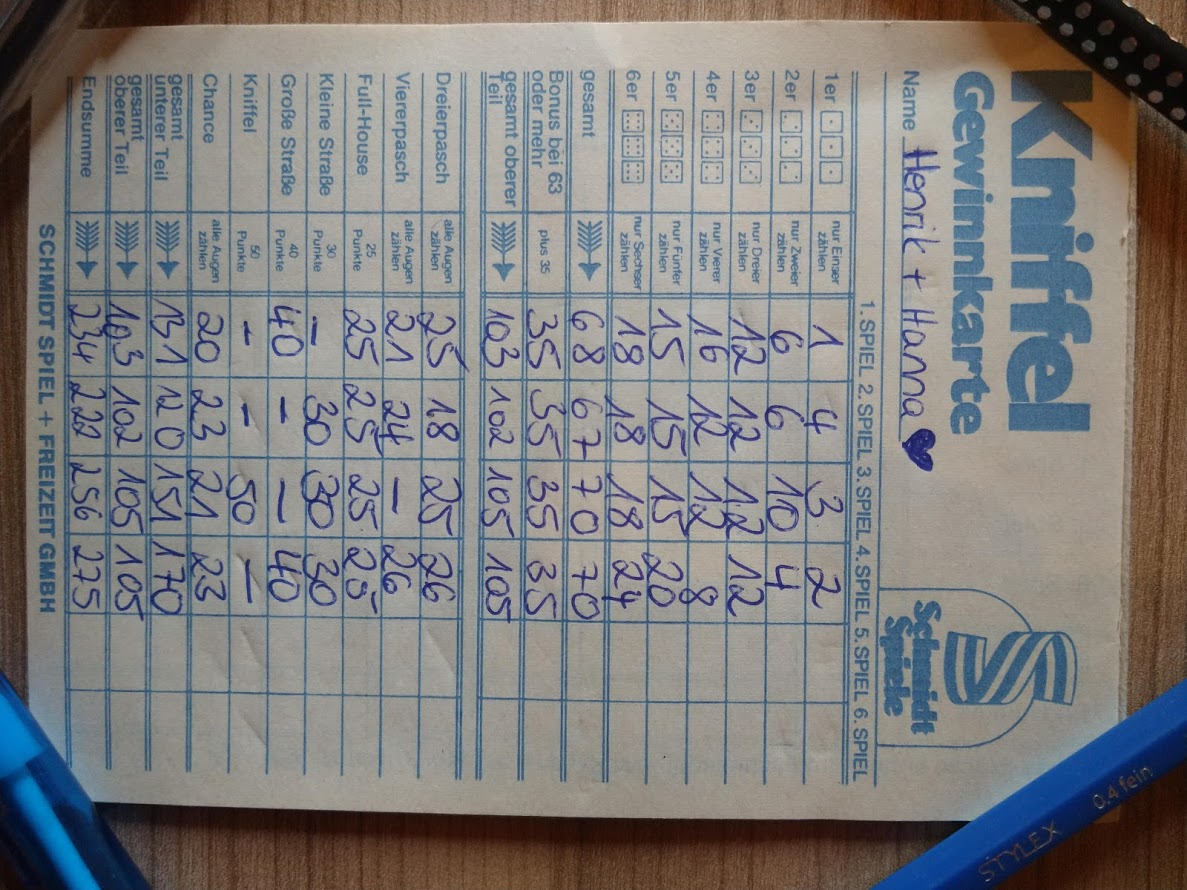 Kniffel
Gewinnkarte
Schmidt
Spiele
Name Henrik + Hanna ♥
1. SPIEL 2. SPIEL 3. SPIEL 4. SPIEL 5. SPIEL 6. SPIEL
1er nur Einser zählen 1 4 3 2
2er nur Zweier zählen 6 6 10 4
3er nur Dreier zählen 12 12 12 12
4er nur Vierer zählen 16 12 12 8
5er nur Fünfer zählen 15 15 15 20
6er nur Sechser zählen 18 18 18 24
gesamt 68 67 70 70
Bonus bei 63 oder mehr plus 35 35 35 35 35
gesamt oberer Teil 103 102 105 105
Dreierpasch alle Augen zählen 25 18 25 26
Viererpasch alle Augen zählen 21 24 – 26
Full-House 25 Punkte 25 25 25 25
Kleine Straße 30 Punkte – 30 30 30
Große Straße 40 Punkte 40 – – 40
Kniffel 50 Punkte – – 50 –
Chance alle Augen zählen 20 23 21 23
gesamt unterer Teil 131 120 151 170
gesamt oberer Teil 103 102 105 105
Endsumme 234 222 256 275
SCHMIDT SPIEL + FREIZEIT GMBH
STYLEX 0.4 fein